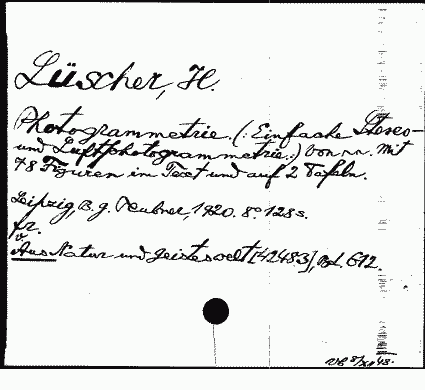 Lüscher, H.
Photogrammetrie. (: Einfache Stereo-
und Luftphotogrammetrie.:) Von ... Mit
78 Figuren im Text und auf 2 Tafeln.
Leipzig, B. G. Teubner, 1920. 8° 128 s.
fr.
Aus Natur und Geisteswelt [42483], Bd. 612.